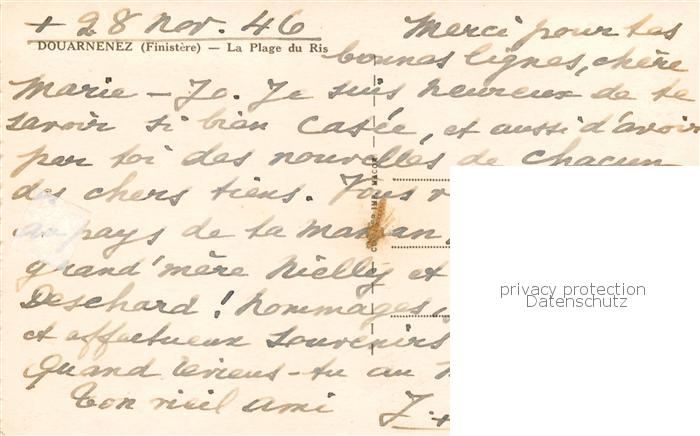 + 28 Nov. 46
DOUARNENEZ (Finistère) — La Plage du Ris
Merci pour tes
bonnes lignes, chère
Marie-Jo. Je suis heureux de te
savoir si bien casée, et aussi d'avoir
par toi des nouvelles de chacun
des chers tiens. Vous
au pays de ta maman,
grand'mère Nielly et
Deschard ! hommages,
et affectueux souvenirs
Quand reviens-tu au
Ton vieil ami J. +
privacy protection
Datenschutz